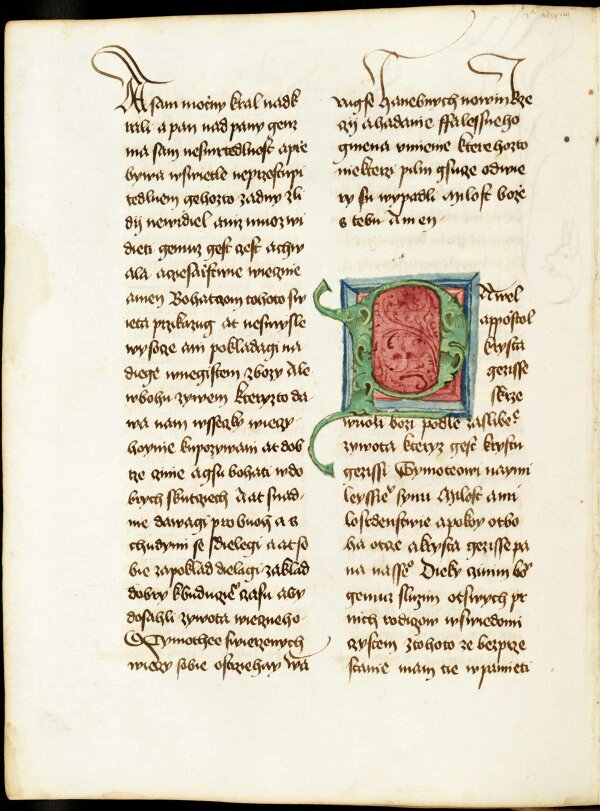 A sam moczny kral nadk
rali a pan nad pany genz
ma sam nesmrtedlnost a prze
bywa wswietle neprzistupi
tedlnem gehozto zadny zli
dij newidiel aniz muoz wi
dieti gemuz gest czest a chw
ala a czesarzstwie wiecznie
amen Bohatczom tohoto sw
ieta przikazug at nesmysle
wysoze ani pokladagi na
diege wnegistem zbozy Ale
wbohu zywem kteryzto da
wa nam wsseczky wieczy
hoynie kupozywani at dob
rze czinie a gsu bohati wdo
brych skutczech A at snad
nie dawagi pro buoh a s
chudymi se sdielegi a at so
bie zapoklad dielagi zaklad
dobry kbuduczie czasu aby
dosahli zywota wiecznego
O Tymothee swierzenych
wieczy sobie ostrziehay wa
ruge se hanebnych nowin rze
czij a hadanie ffalessneho
gmena vmienie ktereho zto
niekterzi pilni gsucze od wie
ry su wypadli Milost bozie
s tebu Amen

PAwel
appostol
krysta
gezisse
skrze
wuoli bozi podle zaslibe
zywota kteryz gest krystu
gezissi Tymoteowi naymi
leyssie synu Milost a mi
losrdenstwie a pokoy ot bo
ha otcze a krysta gezisse pa
na nasse Dieky czinim bo
gemuz sluzim ot swych pr
nich rodiczow wswiedomi
czystem ztohoto ze bezprze
stanie mam tie wpamieti